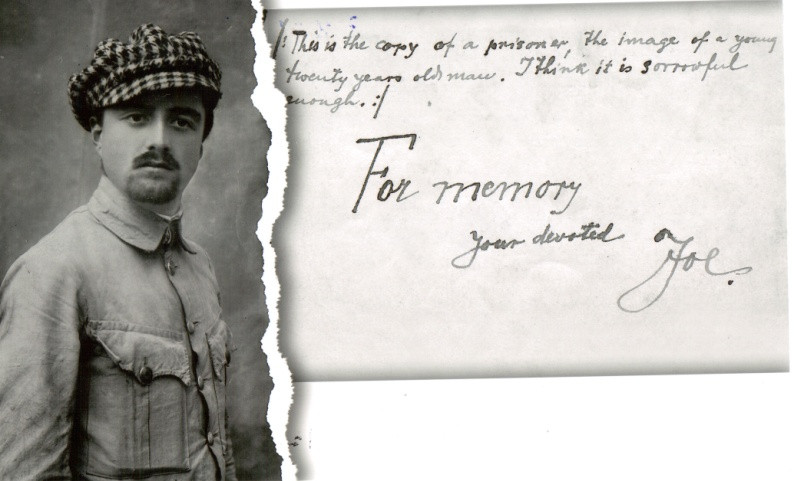 /: This is the copy of a prisoner, the image of a young
twenty years old man. I think it is sorrowful
enough. :/
For memory
your devoted
Joe.